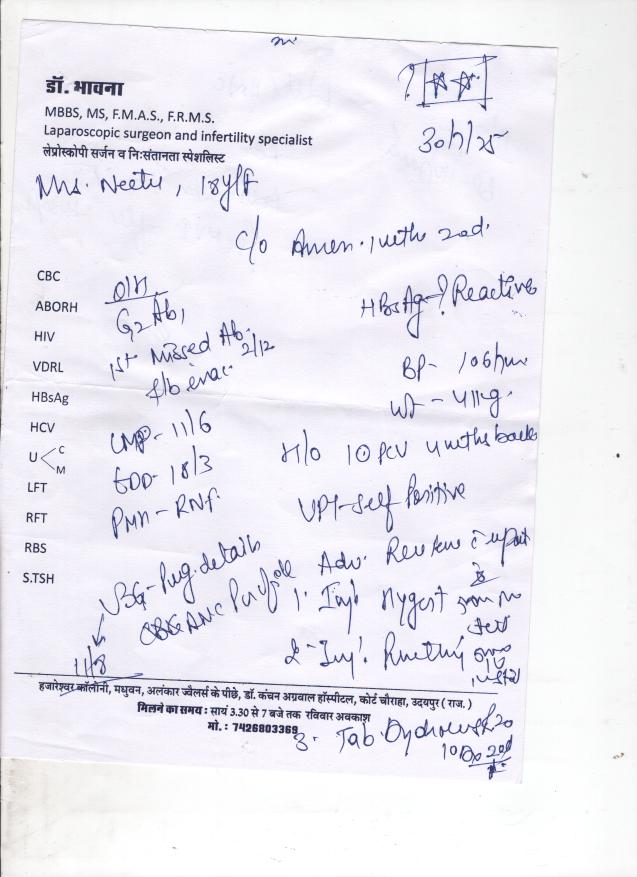 डॉ. भावना
MBBS, MS, F.M.A.S., F.R.M.S.
Laparoscopic surgeon and infertility specialist
लेप्रोस्कोपी सर्जन व निःसंतानता स्पेशलिस्ट
?
30/7/25
Mrs. Neetu, 18y/F
c/o Amen. 1 mth 20d.
CBC
ABORH
HIV
VDRL
HBsAg
HCV
U < C M
LFT
RFT
RBS
S.TSH
O/H
G2 Ab1
1st Missed Ab. 2/12
f/b evac.
LMP- 11/6
EDD- 18/3
PMH- RNF.
HBsAg-? Reactive
BP- 106/
WT- 41kg.
H/o 10 PCV 4 mths back
UPT-self Positive
Adv. Review c report
USG- Preg. details
ANC Profile
11/8
1. Inj.
2- Inj.
3. Tab.
10 20d
हजारेश्वर कॉलोनी, मधुवन, अलंकार ज्वैलर्स के पीछे, डॉ. कंचन अग्रवाल हॉस्पीटल, कोर्ट चौराहा, उदयपुर ( राज. )
मिलने का समय : सायं 3.30 से 7 बजे तक रविवार अवकाश
मो. : 7426803369